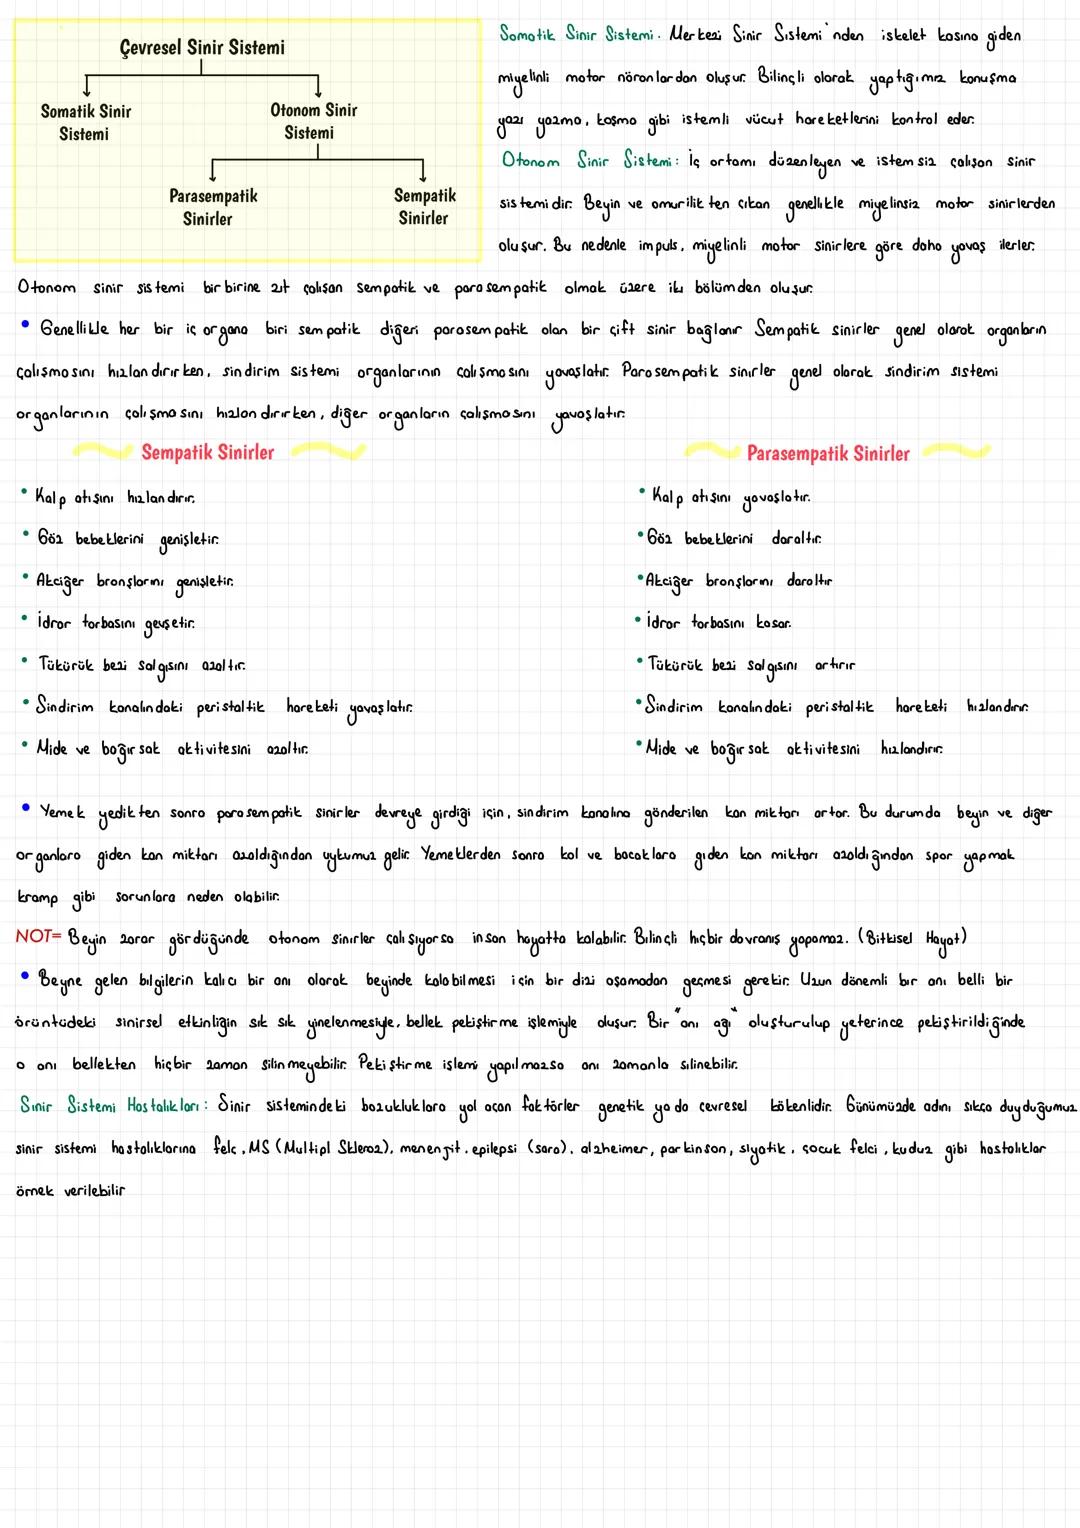 Çevresel Sinir Sistemi
Somatik Sinir
Sistemi
Otonom Sinir
Sistemi
Parasempatik
Sinirler
Sempatik
Sinirler
Somatik Sinir Sistemi. Merkezi Sinir Sistemi'nden iskelet kasına giden
miyelinli motor nöronlardan oluşur. Bilinçli olarak yaptığımız konuşma
yazı yazma, koşma gibi istemli vücut hareketlerini kontrol eder.
Otonom Sinir Sistemi: İç ortamı düzenleyen ve istemsiz çalışan sinir
sistemidir. Beyin ve omurilikten çıkan genellikle miyelinsiz motor sinirlerden
oluşur. Bu nedenle impuls, miyelinli motor sinirlere göre daha yavaş ilerler.
Otonom sinir sistemi birbirine zıt çalışan sempatik ve parasempatik olmak üzere iki bölümden oluşur.
• Genellikle her bir iç organa biri sempatik diğeri parasempatik olan bir çift sinir bağlanır Sempatik sinirler genel olarak organların
çalışmasını hızlandırırken, sindirim sistemi organlarının çalışmasını yavaşlatır. Parasempatik sinirler genel olarak sindirim sistemi
organlarının çalışmasını hızlandırırken, diğer organların çalışmasını yavaşlatır.
Sempatik Sinirler
• Kalp atışını hızlandırır.
• Göz bebeklerini genişletir.
• Akciğer bronşlarını genişletir.
• İdrar torbasını gevşetir.
• Tükürük bezi salgısını azaltır.
• Sindirim kanalındaki peristaltik hareketi yavaşlatır.
• Mide ve bağırsak aktivitesini azaltır.
Parasempatik Sinirler
• Kalp atışını yavaşlatır.
• Göz bebeklerini daraltır.
• Akciğer bronşlarını daraltır
• İdrar torbasını kasar.
• Tükürük bezi salgısını artırır
• Sindirim kanalındaki peristaltik hareketi hızlandırır.
• Mide ve bağırsak aktivitesini hızlandırır.
• Yemek yedikten sonra parasempatik sinirler devreye girdiği için, sindirim kanalına gönderilen kan miktarı artar. Bu durumda beyin ve diğer
organlara giden kan miktarı azaldığından uykumuz gelir. Yemeklerden sonra kol ve bacaklara giden kan miktarı azaldığından spor yapmak
kramp gibi sorunlara neden olabilir.
NOT= Beyin zarar gördüğünde otonom sinirler çalışıyorsa insan hayatta kalabilir. Bilinçli hiçbir davranış yapamaz. (Bitkisel Hayat)
• Beyne gelen bilgilerin kalıcı bir anı olarak beyinde kalabilmesi için bir dizi aşamadan geçmesi gerekir. Uzun dönemli bir anı belli bir
örüntüdeki sinirsel etkinliğin sık sık yinelenmesiyle, bellek pekiştirme işlemiyle oluşur. Bir "anı ağı" oluşturulup yeterince pekiştirildiğinde
o anı bellekten hiçbir zaman silinmeyebilir. Pekiştirme işlemi yapılmazsa anı zamanla silinebilir.
Sinir Sistemi Hastalıkları: Sinir sistemindeki bozukluklara yol açan faktörler genetik ya da çevresel kökenlidir. Günümüzde adını sıkça duyduğumuz
sinir sistemi hastalıklarına felç, MS (Multipl Skleroz), menenjit, epilepsi (sara), alzheimer, parkinson, siyatik, çocuk felci, kuduz gibi hastalıklar
örnek verilebilir